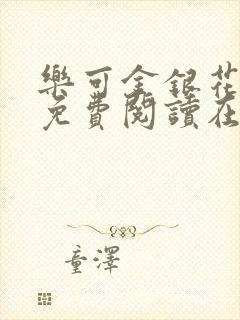 樂可金銀花
免費閱讀在
童澤